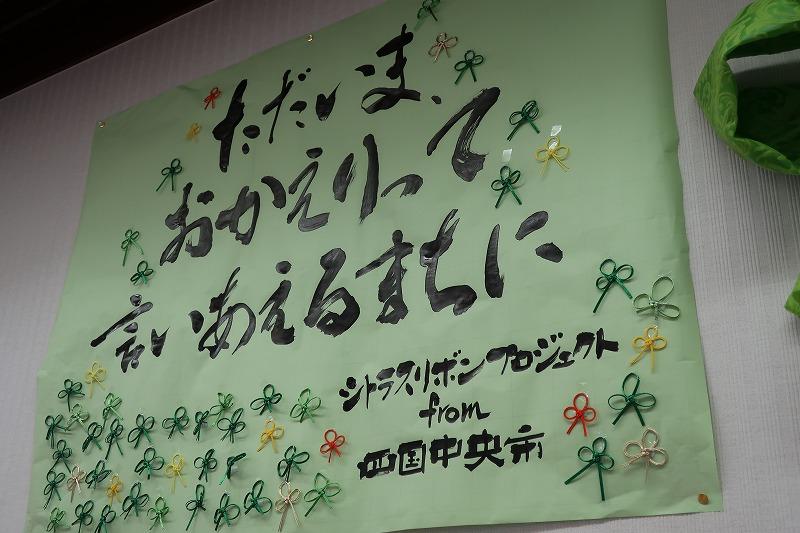 ただいま、
おかえりって
言いあえるまちに
シトラスリボンプロジェクト
from
四国中央市